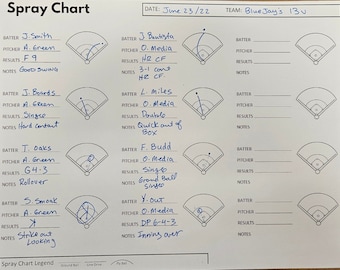 Spray Chart
DATE: June 23/22 TEAM: BlueJay's 13u
BATTER J. Smith
PITCHER A. Green
RESULTS F9
NOTES Good swing
BATTER J. Bautista
PITCHER O. Media
RESULTS HR CF
NOTES 3-1 count
HR CF
BATTER
PITCHER
RESULTS
NOTES
BATTER J. Boards
PITCHER A. Green
RESULTS Single
NOTES Hard contact
BATTER L. Miles
PITCHER O. Media
RESULTS Double
NOTES Quick out of
Box
BATTER
PITCHER
RESULTS
NOTES
BATTER T. Oaks
PITCHER A. Green
RESULTS G4-3
NOTES Rollover
BATTER F. Budd
PITCHER O. Media
RESULTS Single
NOTES Ground Ball
Single
BATTER
PITCHER
RESULTS
NOTES
BATTER S. Smoak
PITCHER A. Green
RESULTS
NOTES Strike out
Looking
BATTER Y. Out
PITCHER O. Media
RESULTS DP 6-4-3
NOTES Inning over
BATTER
PITCHER
RESULTS
NOTES
Spray Chart Legend